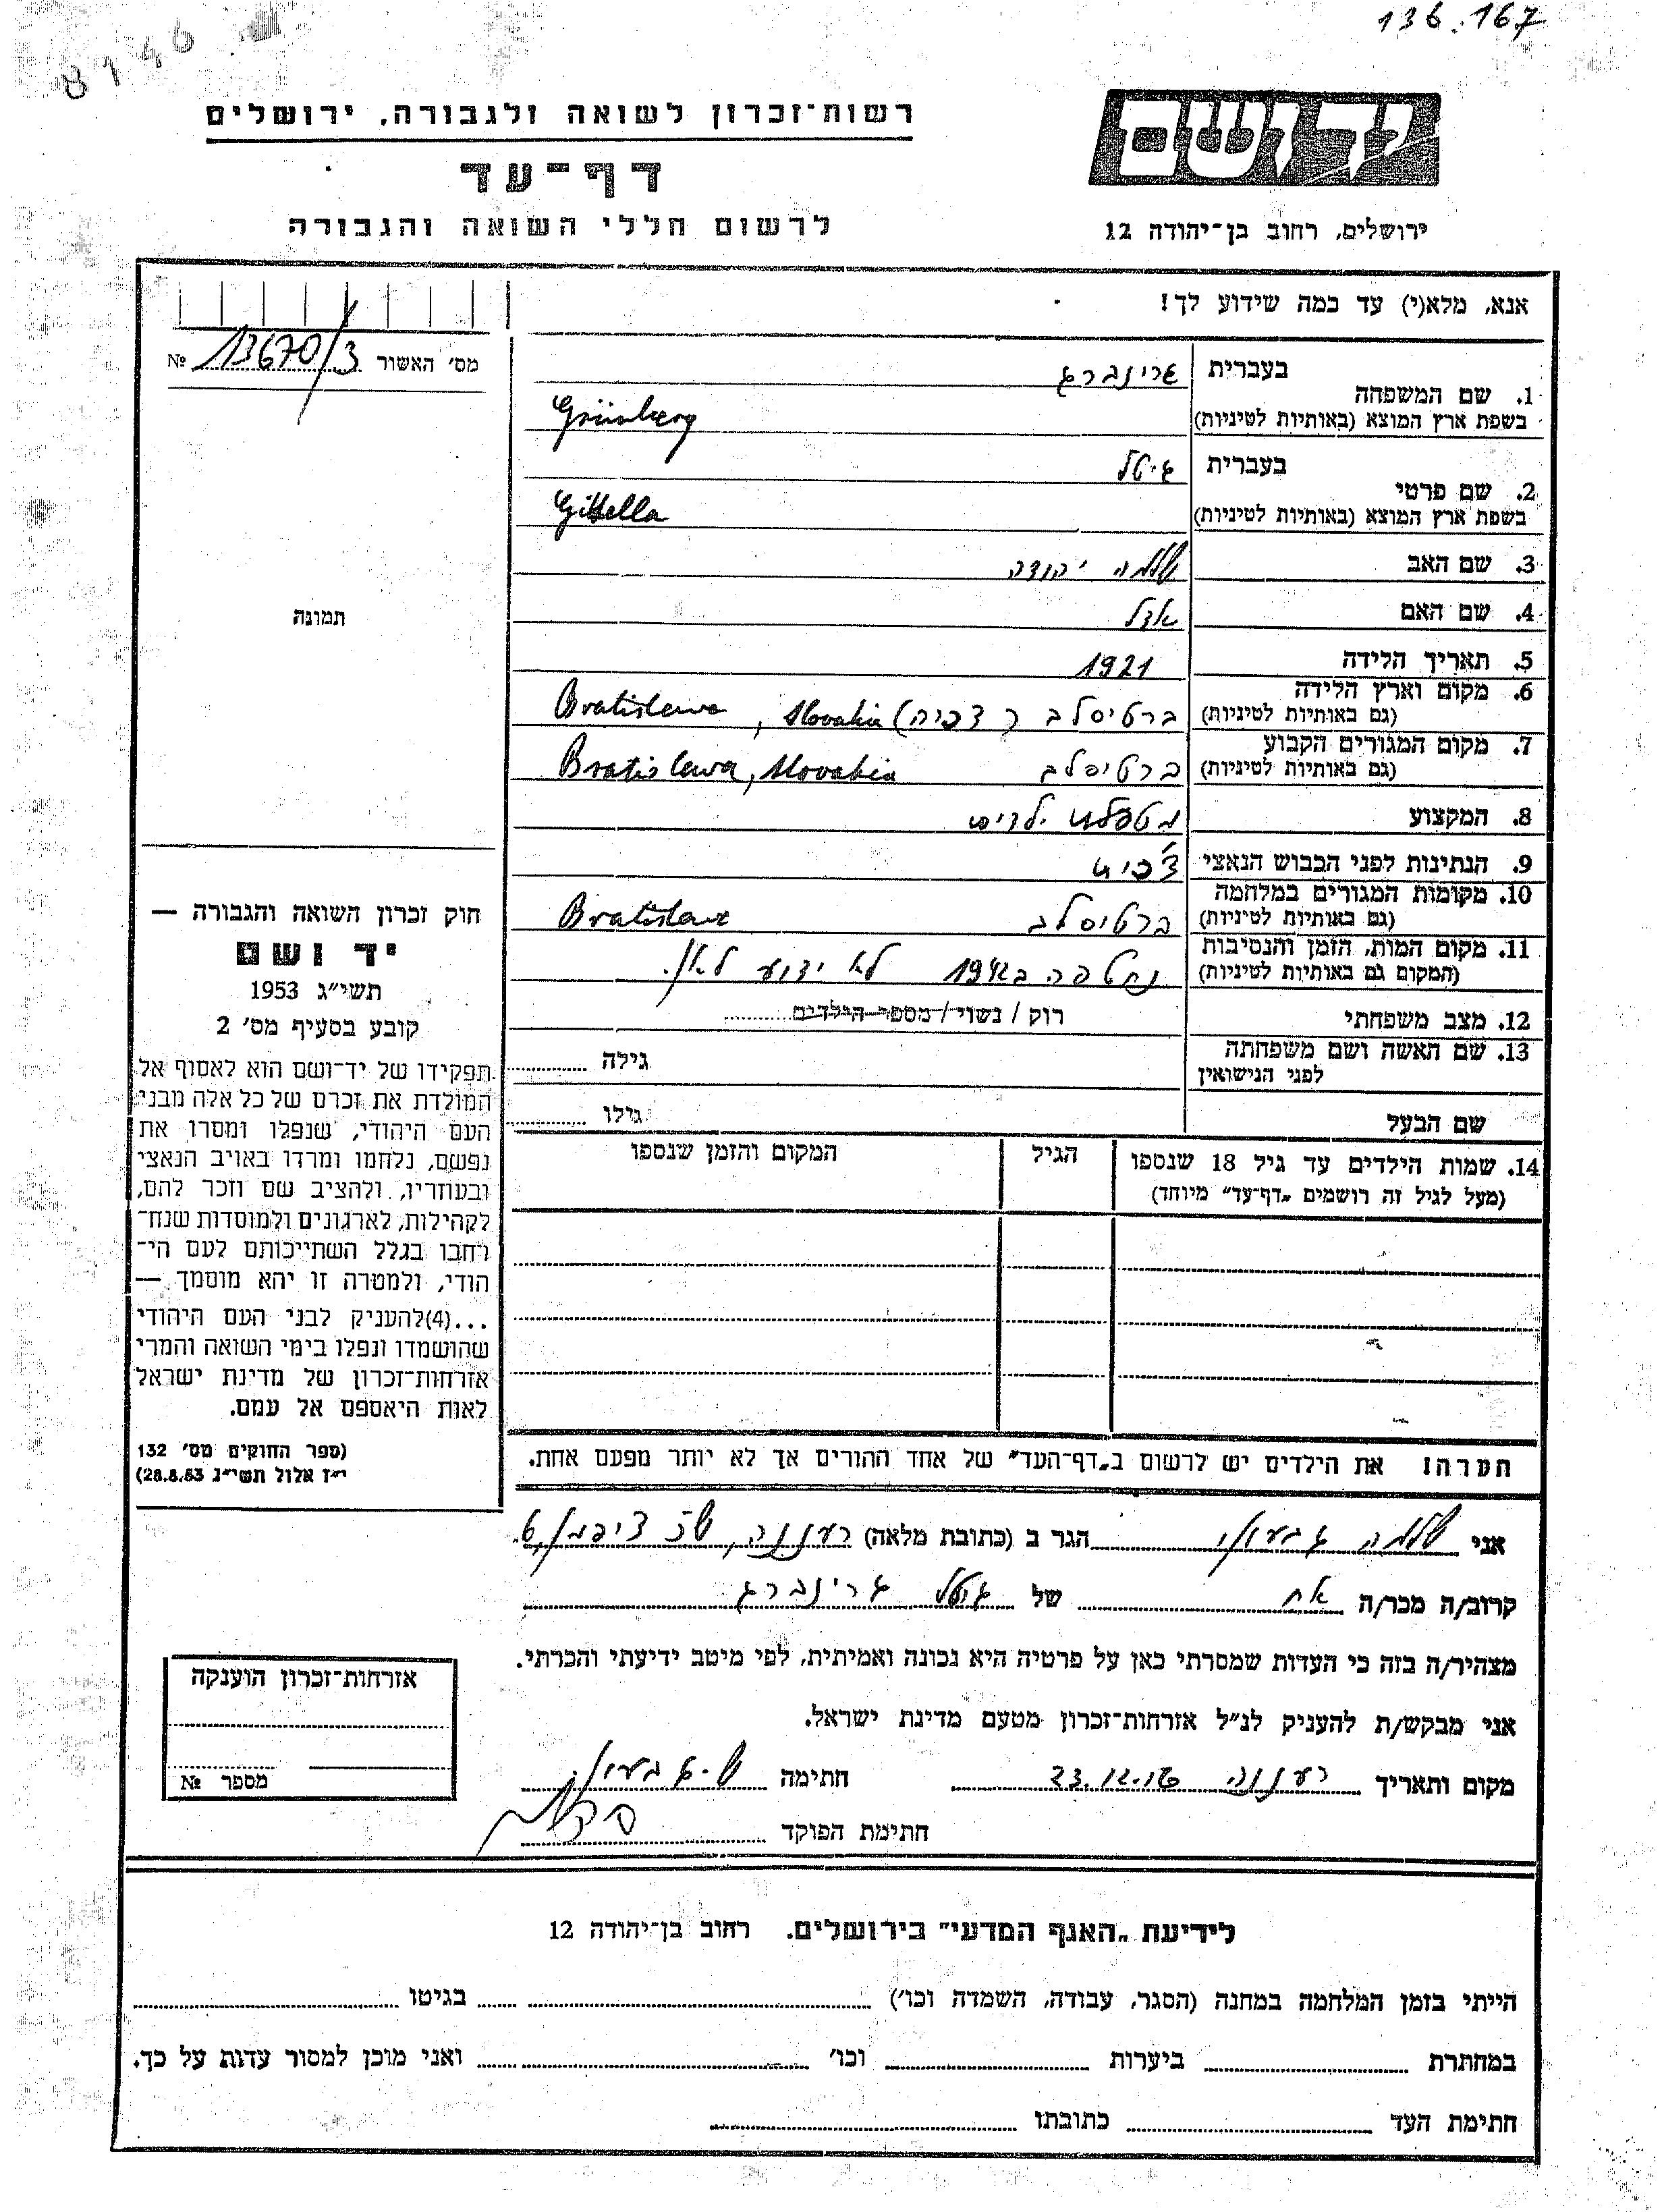 136.167
8146
רשות־זכרון לשואה ולגבורה, ירושלים
דף־עד
לרשום חללי השואה והגבורה
ידושם
ירושלים, רחוב בן־יהודה 12
אנא, מלא(י) עד כמה שידוע לך!
מס׳ האשור 13670/3 №
1. שם המשפחה
בעברית גרינברג
בשפת ארץ המוצא (באותיות לטיניות) Grünberg
2. שם פרטי
בעברית גיטל
בשפת ארץ המוצא (באותיות לטיניות) Gittella
3. שם האב שלמה יהודה
4. שם האם אדל
5. תאריך הלידה 1921
6. מקום וארץ הלידה
(גם באותיות לטיניות) ברטיסלב (צכיה) Bratislawa, Slovakia
7. מקום המגורים הקבוע
(גם באותיות לטיניות) ברטיסלב Bratislawa, Slovakia
8. המקצוע מטפלת ילדים
9. הנתינות לפני הכבוש הנאצי צ׳כית
10. מקומות המגורים במלחמה
(גם באותיות לטיניות) ברטיסלב Bratislava
11. מקום המות, הזמן והנסיבות
(המקום גם באותיות לטיניות) נחטפה ב1942 לא ידוע לאן.
12. מצב משפחתי רוק / נשוי / מספר הילדים
13. שם האשה ושם משפחתה
לפני הנישואין
גילה
שם הבעל
גילו
14. שמות הילדים עד גיל 18 שנספו
(מעל לגיל זה רושמים „דף־עד״ מיוחד)
הגיל
המקום והזמן שנספו
תמונה
חוק זכרון השואה והגבורה —
יד ושם
תשי״ג 1953
קובע בסעיף מס׳ 2
תפקידו של יד־ושם הוא לאסוף אל
המולדת את זכרם של כל אלה מבני
העם היהודי, שנפלו ומסרו את
נפשם, נלחמו ומרדו באויב הנאצי
ובעוזריו, ולהציב שם וזכר להם,
לקהילות, לארגונים ולמוסדות שנח־
רחבו בגלל השתייכותם לעם הי־
הודי, ולמטרה זו יהא מוסמך —
...(4)להעניק לבני העם היהודי
שהושמדו ונפלו בימי השואה והמרי
אזרחות־זכרון של מדינת ישראל
לאות היאספם אל עמם.
(ספר החוקים מס׳ 132
י״ז אלול תשי״ג 28.8.53)
הערה! את הילדים יש לרשום ב„דף־העד״ של אחד ההורים אך לא יותר מפעם אחת.
אני שלמה גבעולי הגר ב (כתובת מלאה) רעננה,
קרוב/ה מכר/ה אח של גיטל גרינברג
מצהיר/ה בזה כי העדות שמסרתי כאן על פרטיה היא נכונה ואמיתית, לפי מיטב ידיעתי והכרתי.
אני מבקש/ת להעניק לנ״ל אזרחות־זכרון מטעם מדינת ישראל.
מקום ותאריך רעננה חתימה
חתימת הפוקד
אזרחות־זכרון הוענקה
מספר №
לידיעת „האגף המדעי״ בירושלים. רחוב בן־יהודה 12
הייתי בזמן המלחמה במחנה (הסגר, עבודה, השמדה וכו׳) בגיטו
במחתרת ביערות וכו׳ ואני מוכן למסור עדות על כך.
חתימת העד כתובתו